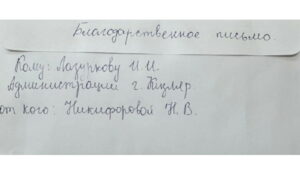 Благодарственное письмо.
Кому: Лазуркову И.И.
Администрации г. Кизляр
от кого: Никифоровой Н.В.